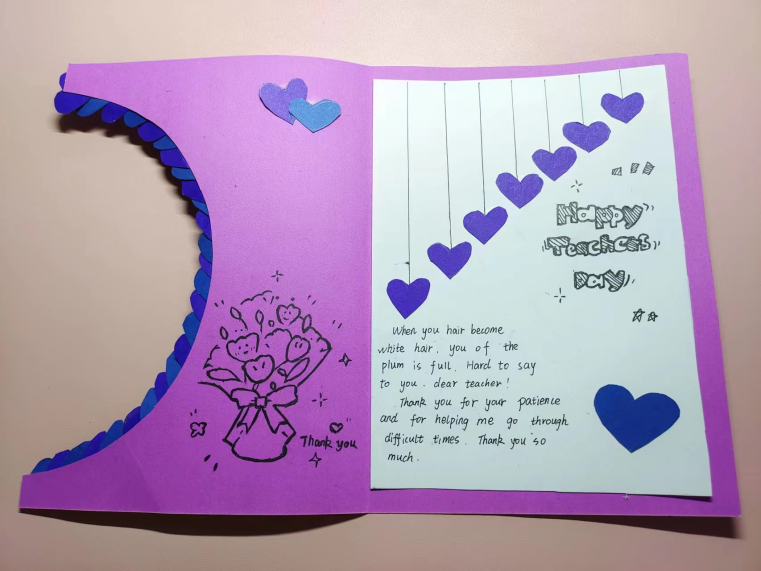 Happy
Teachers
Day
When you hair become
white hair, you of the
plum is full. Hard to say
to you. dear teacher!
Thank you for your patience
and for helping me go through
difficult times. Thank you so
much.
Thank you